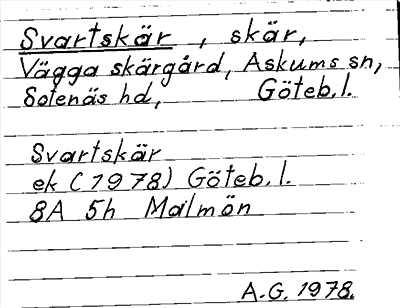 Svartskär, skär,
Vägga skärgård, Askums sn,
Sotenäs hd, Göteb. l.
Svartskär
ek (1978) Göteb. l.
8A 5h Malmön
A.G. 1978.